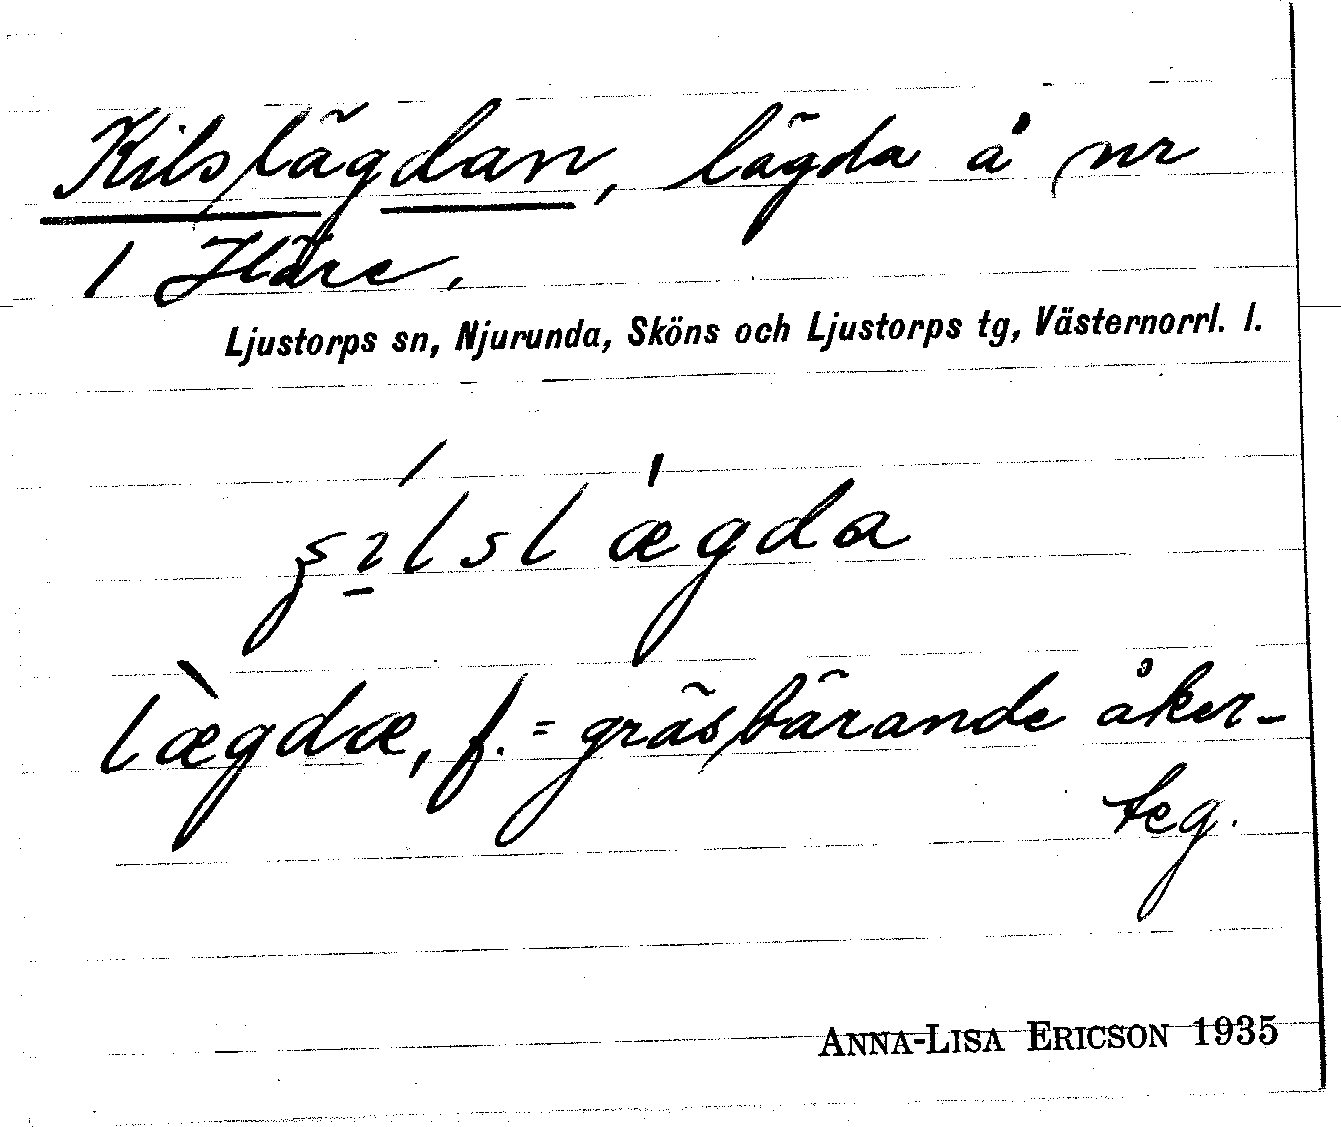 Kilslägdan, lägda å nr
1 Häre.
Ljustorps sn, Njurunda, Sköns och Ljustorps tg, Västernorrl. l.
lægda
lægdæ, f. = gräsbärande åker-
teg.
ANNA-LISA ERICSON 1935